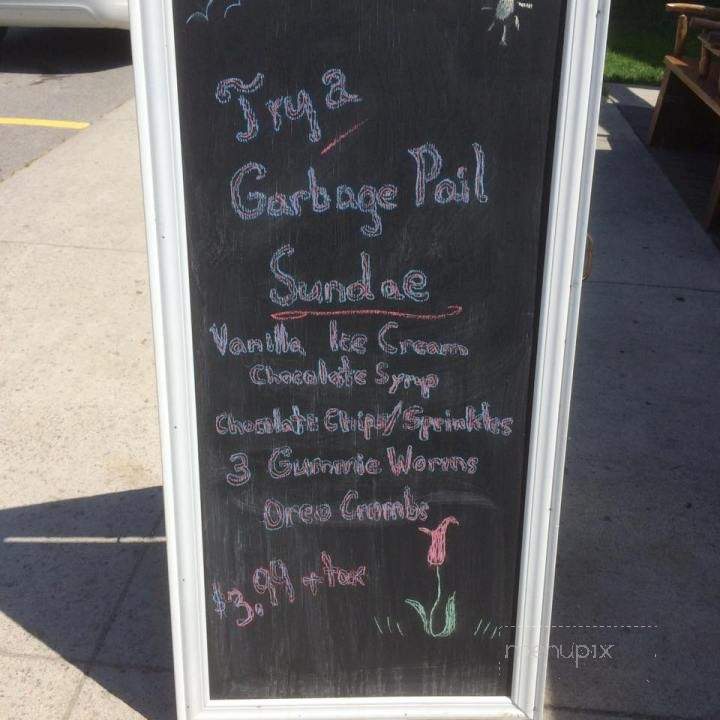 Try a
Garbage Pail
Sundae
Vanilla Ice Cream
Chocolate Syrup
Chocolate Chips/Sprinkles
3 Gummie Worms
Oreo Crumbs
$3.99 + tax
menupix